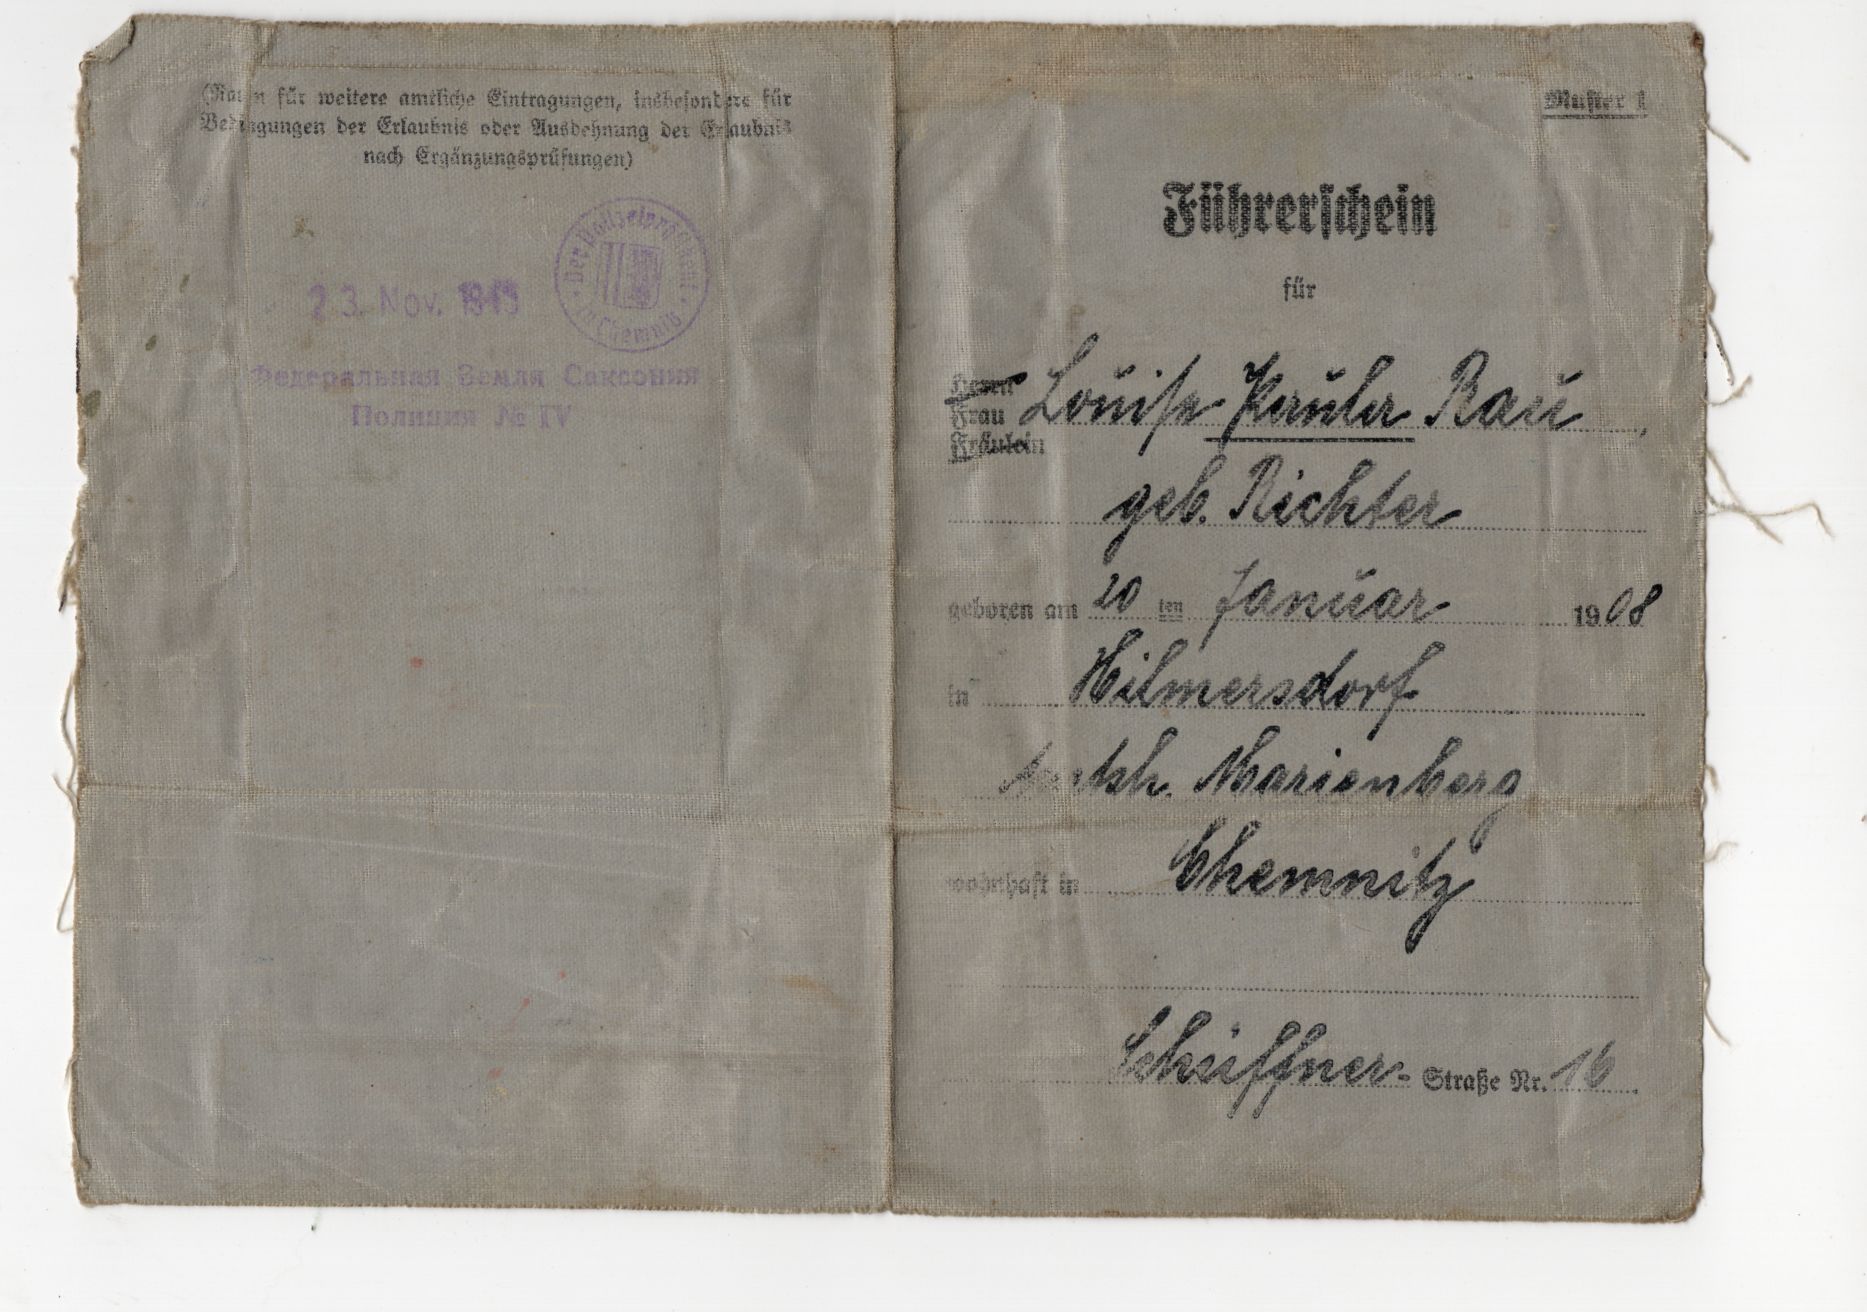 (Raum für weitere amtliche Eintragungen, insbesondere für
Bedingungen der Erlaubnis oder Ausdehnung der Erlaubnis
nach Ergänzungsprüfungen)
Der Polizeipräsident
in Chemnitz
23. Nov. 1945
Федеральная Земля Саксония
Полиция № IV
Muster 1
Führerschein
für
Herrn
Frau
Fräulein
Louise Rau,
geb. Richter
geboren am 20 ten Januar 1908
in Hilmersdorf
Amtsh. Marienberg
wohnhaft in Chemnitz
Schüffner- Straße Nr. 16.